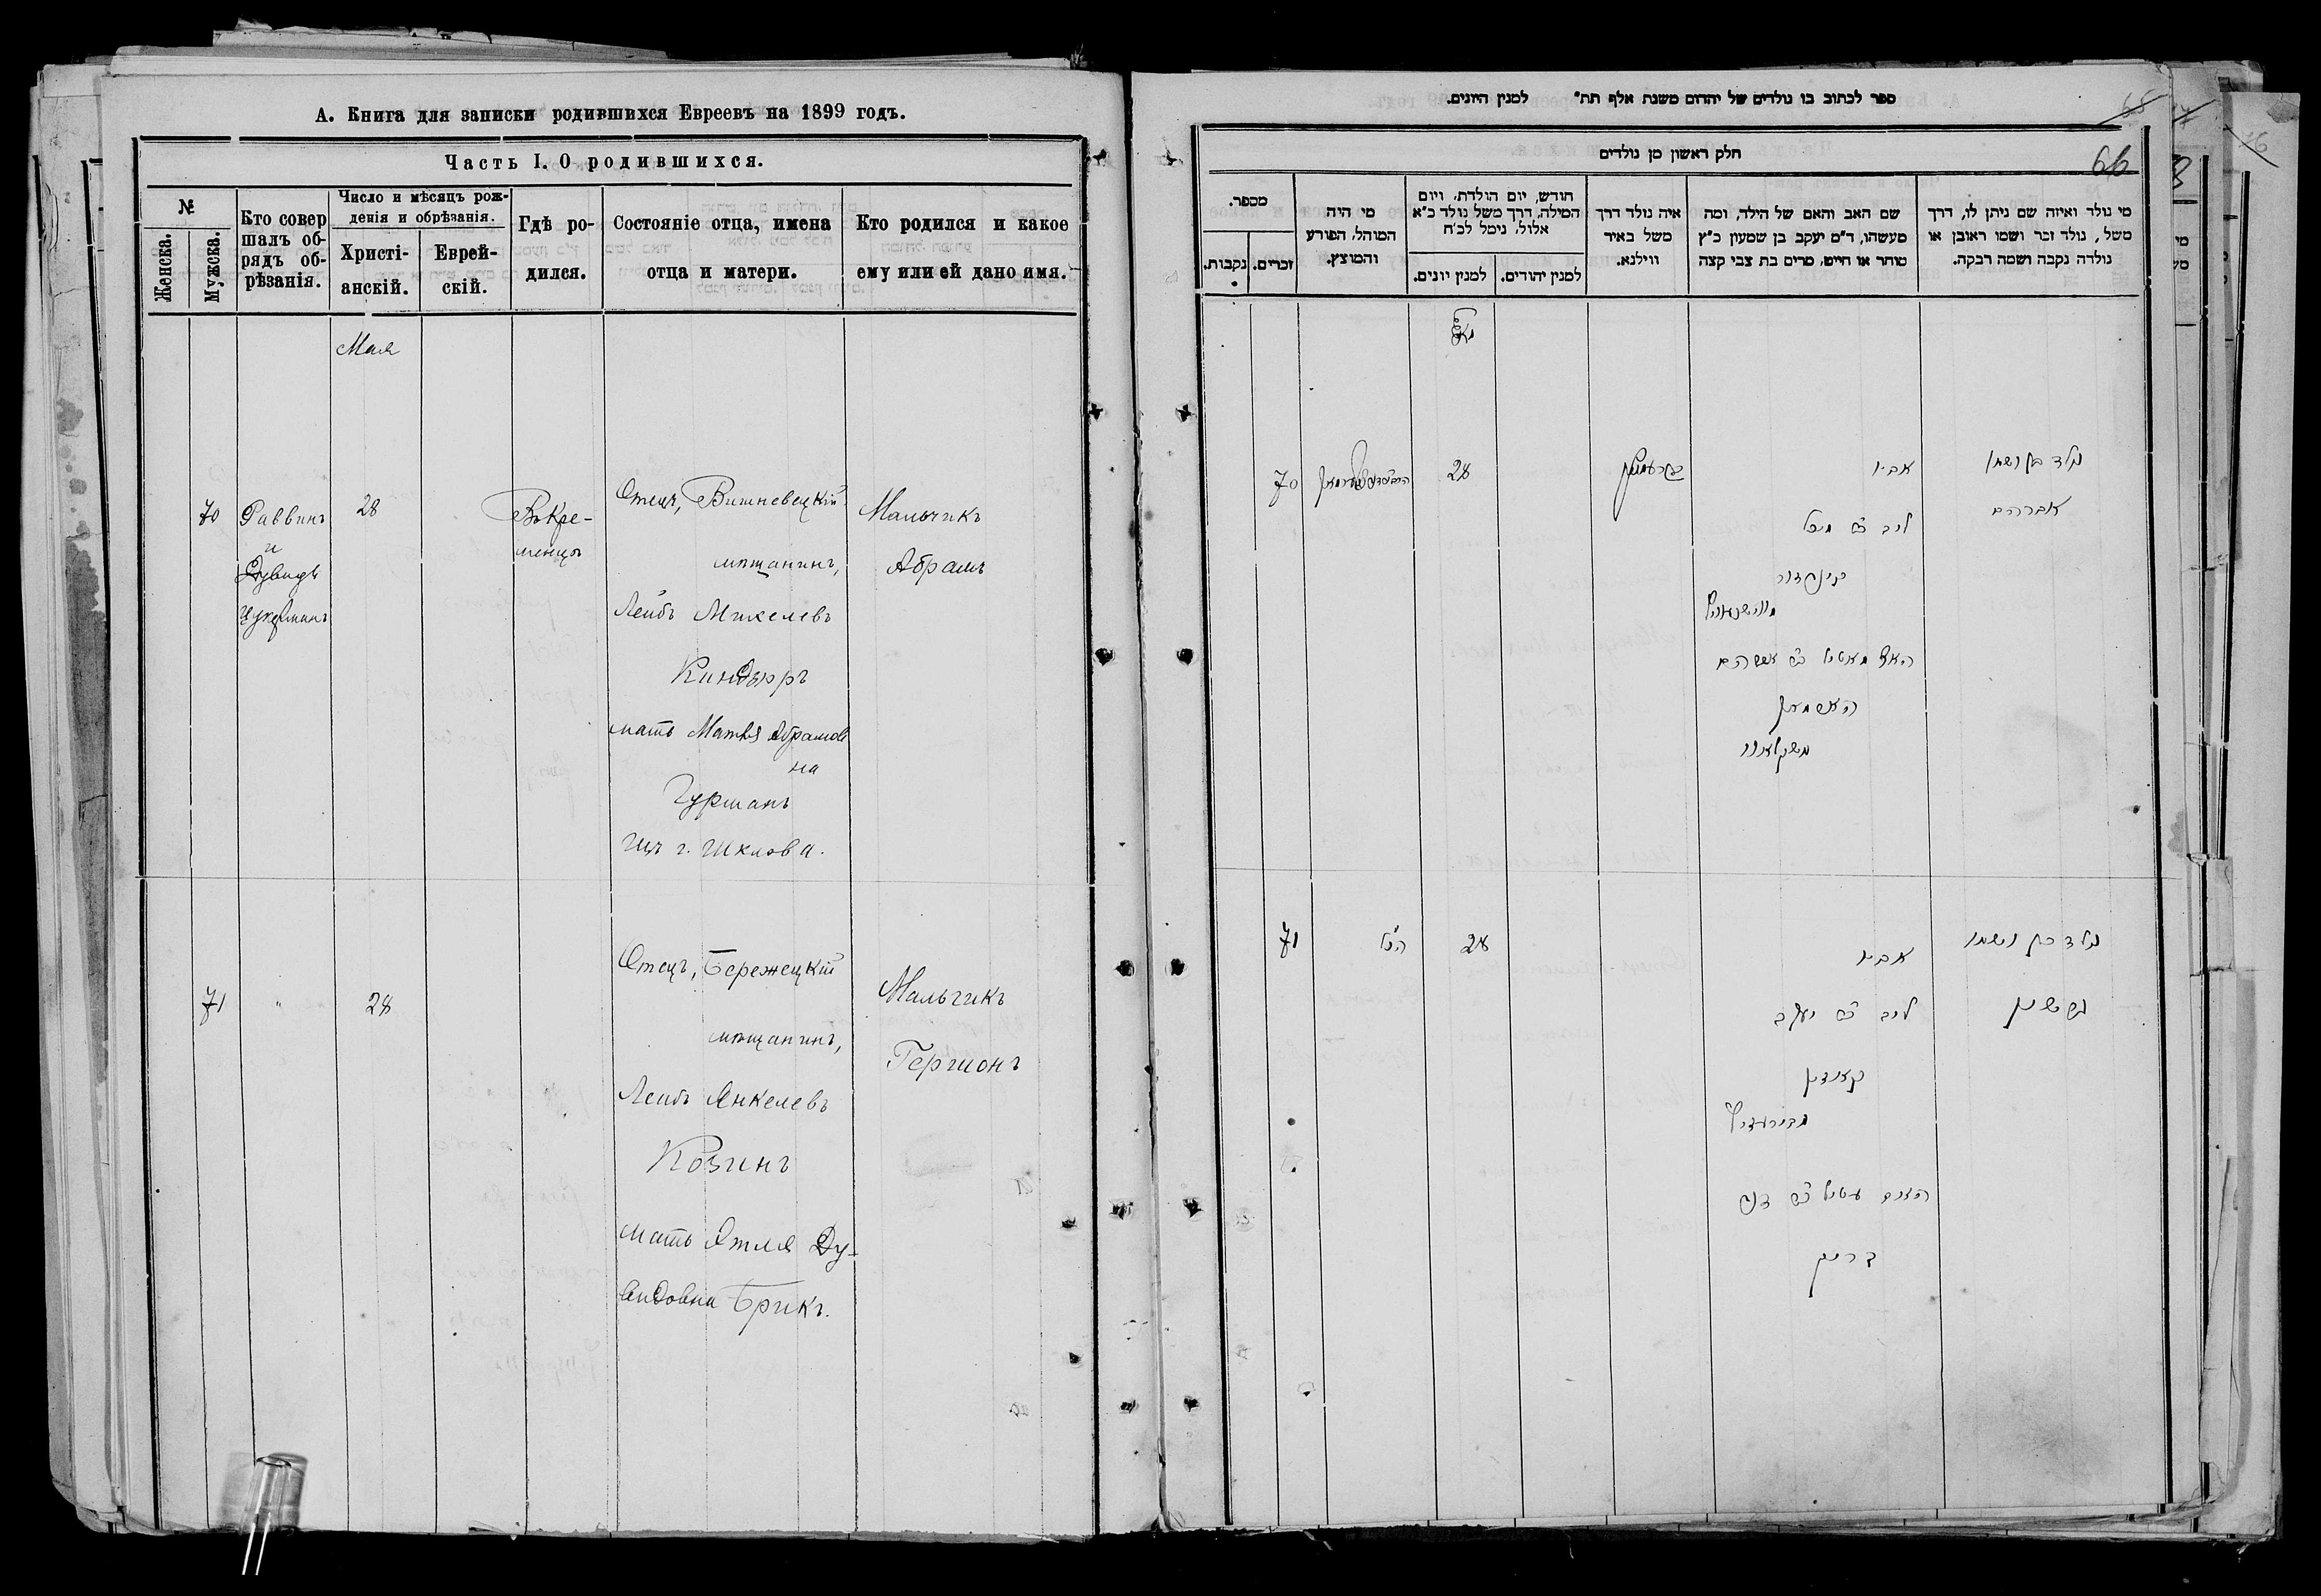 А. Книга для записки родившихся Евреевъ на 1899 годъ.
Часть I. О родившихся.
№
Женска.
Мужска.
Кто совер
шалъ об-
рядъ об-
рѣзанія.
Число и мѣсяцъ рож-
денія и обрѣзанія.
Христі-
анскій.
Еврей-
скій.
Гдѣ ро-
дился.
Состояніе отца, имена
отца и матери.
Кто родился и какое
ему или ей дано имя.
Мая
70
Раввинъ
и
Дувидъ
Цукерманъ
28
Въ Кре-
менцѣ
Отецъ, Вишневецкій
мѣщанинъ,
Лейбъ Михелевъ
Киндзюръ
мать Матля Абрамов
на
Гурманъ
изъ г. Шклова.
Мальчикъ
Абрамъ
71
"
28
Отецъ, Бережецкій
мѣщанинъ,
Лейбъ Янкелевъ
Козинъ
мать Этля Ду-
видовна Брикъ.
Мальчикъ
Гершонъ
ספר לכתוב בו נולדים של יהדום משנת אלף תת" למנין היונים.
חלק ראשון מן נולדים
66
מספר.
נקבות.
זכרים.
מי היה
המוהל, הפורע
והמוצץ.
חודש, יום הולדת, ויום
המילה, דרך משל נולד כ"א
אלול, נימל לכ"ח
למנין יונים.
למנין יהודים.
איה נולד דרך
משל באיר
ווילנא.
שם האב והאם של הילד, ומה
מעשהו, ד"מ יעקב בן שמעון כ"ץ
סוחר או חייט, מרים בת צבי קצה
מי נולד ואיזה שם ניתן לו, דרך
משל, נולד זכר ושמו ראובן או
נולדה נקבה ושמה רבקה.
70
28
אביו
ליב
נולד בן ושמו
אברהם
71
הנ"ל
28
אביו
ליב ב"ר יעקב
קאזין
נולד בן ושמו
גרשון